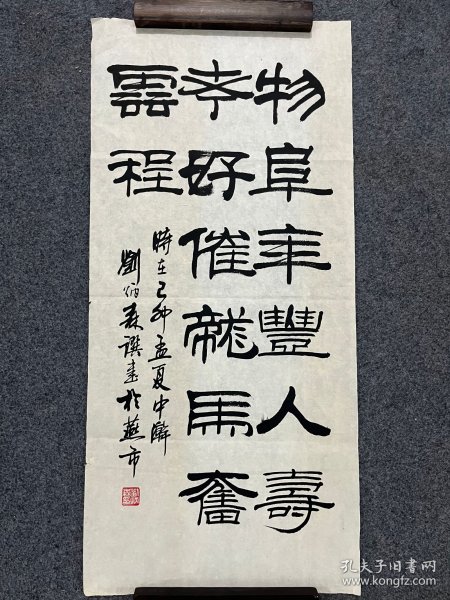 物阜年豐人壽
考好催龍馬奮
雲程
時在己卯孟夏中澣
劉炳森譔書於燕市
孔夫子旧书网
www.kongfz.com